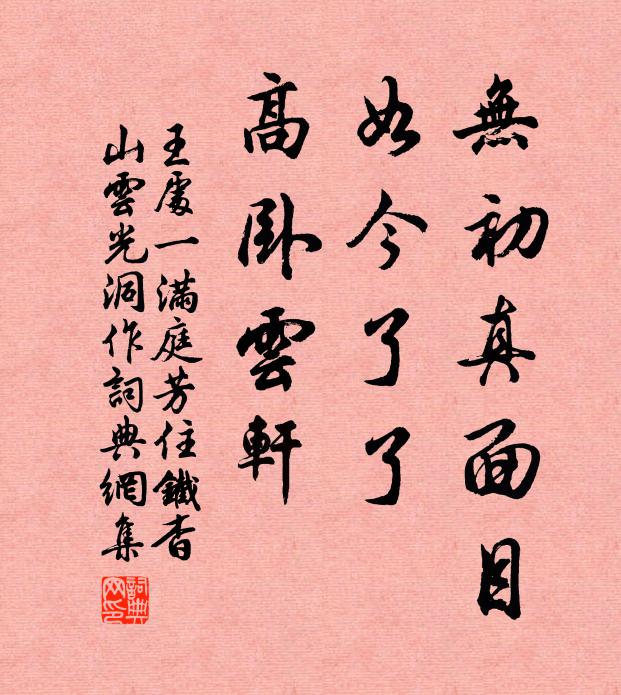 無初真面目
如今了了
高卧雲軒
王處一滿庭芳住鐵查
山雲光洞作詞典網集
詞典網印